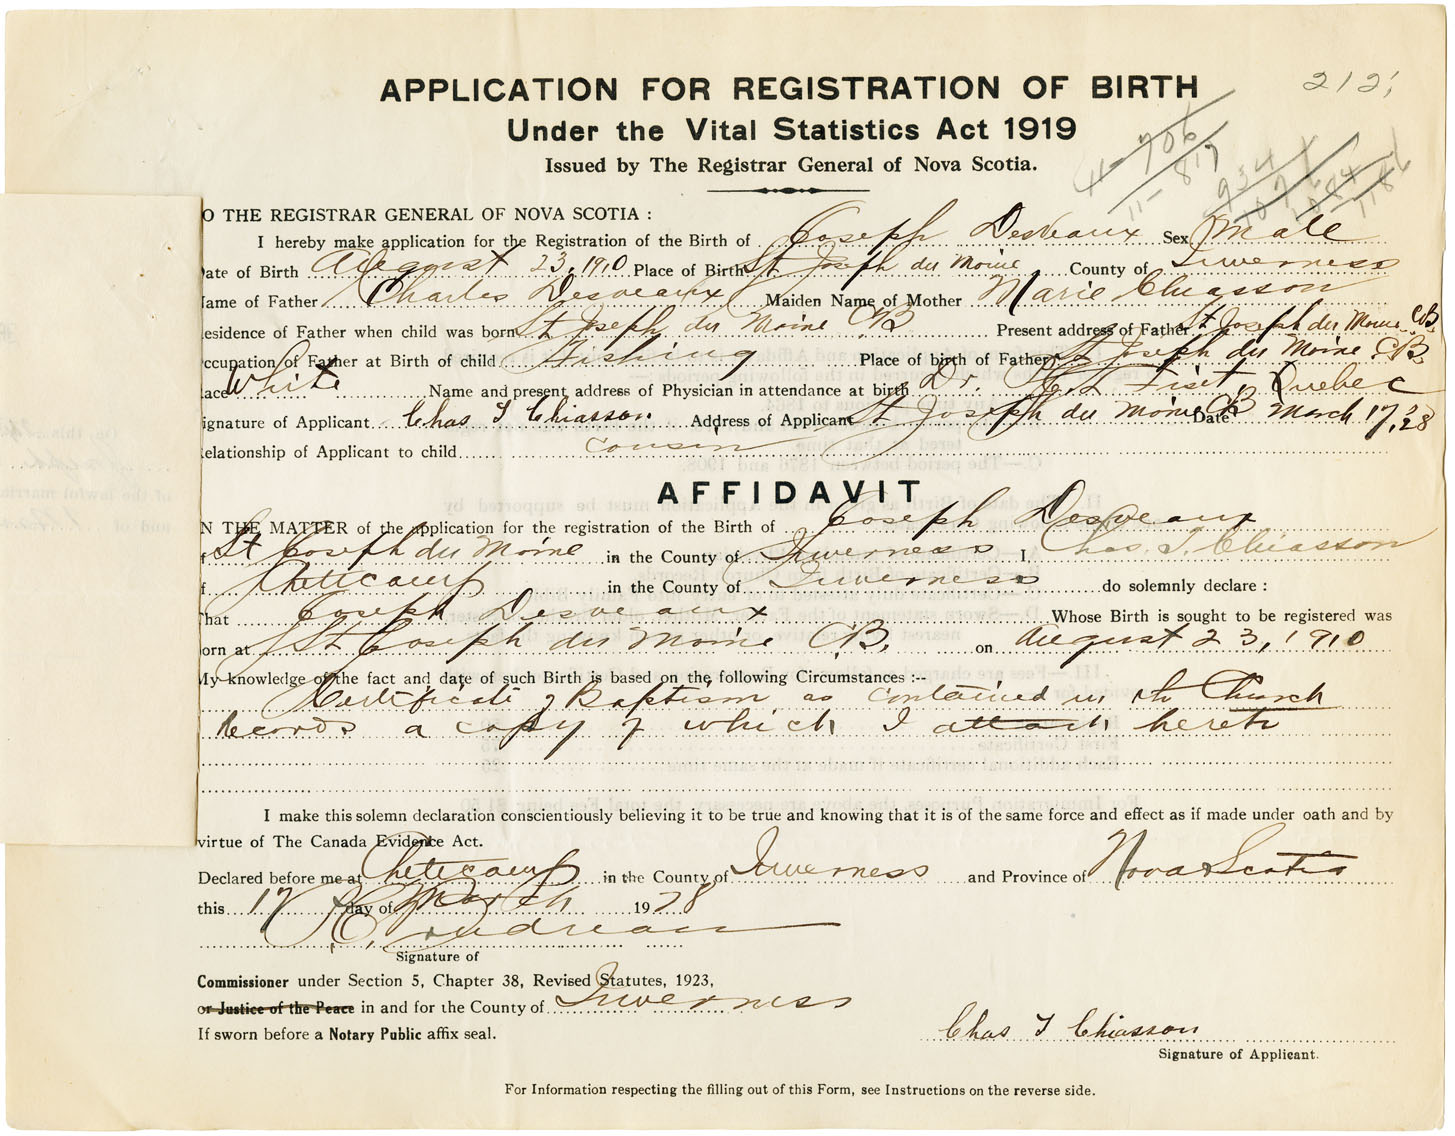 2121
APPLICATION FOR REGISTRATION OF BIRTH
Under the Vital Statistics Act 1919
Issued by The Registrar General of Nova Scotia.
11-706
11-817
934
1076
1084
1186
O THE REGISTRAR GENERAL OF NOVA SCOTIA :
I hereby make application for the Registration of the Birth of Joseph Desveaux Sex Male
ate of Birth August 23, 1910 Place of Birth St Joseph du Moine County of Inverness
ame of Father Charles Desveaux Maiden Name of Mother Marie Chiasson
esidence of Father when child was born St Joseph du Moine CB Present address of Father St Joseph du Moine CB.
ccupation of Father at Birth of child Fishing Place of birth of Father St Joseph du Moine CB.
ace White Name and present address of Physician in attendance at birth Dr. Fiset, Quebec
ignature of Applicant Chas T Chiasson Address of Applicant St Joseph du Moine CB Date March 17, '28
elationship of Applicant to child cousin
AFFIDAVIT
N THE MATTER of the application for the registration of the Birth of Joseph Desveaux
f St Joseph du Moine in the County of Inverness I, Chas. T. Chiasson
f Cheticamp in the County of Inverness do solemnly declare :
hat Joseph Desveaux Whose Birth is sought to be registered was
orn at St Joseph du Moine CB. on August 23, 1910
My knowledge of the fact and date of such Birth is based on the following Circumstances :--
Certificate of Baptism as contained in the Church
Records a copy of which I attach hereto
I make this solemn declaration conscientiously believing it to be true and knowing that it is of the same force and effect as if made under oath and by
virtue of The Canada Evidence Act.
Declared before me at Cheticamp in the County of Inverness and Province of Nova Scotia
this 17 day of March 1928
Signature of
Commissioner under Section 5, Chapter 38, Revised Statutes, 1923,
or Justice of the Peace in and for the County of Inverness
If sworn before a Notary Public affix seal.
Chas T Chiasson
Signature of Applicant.
For Information respecting the filling out of this Form, see Instructions on the reverse side.